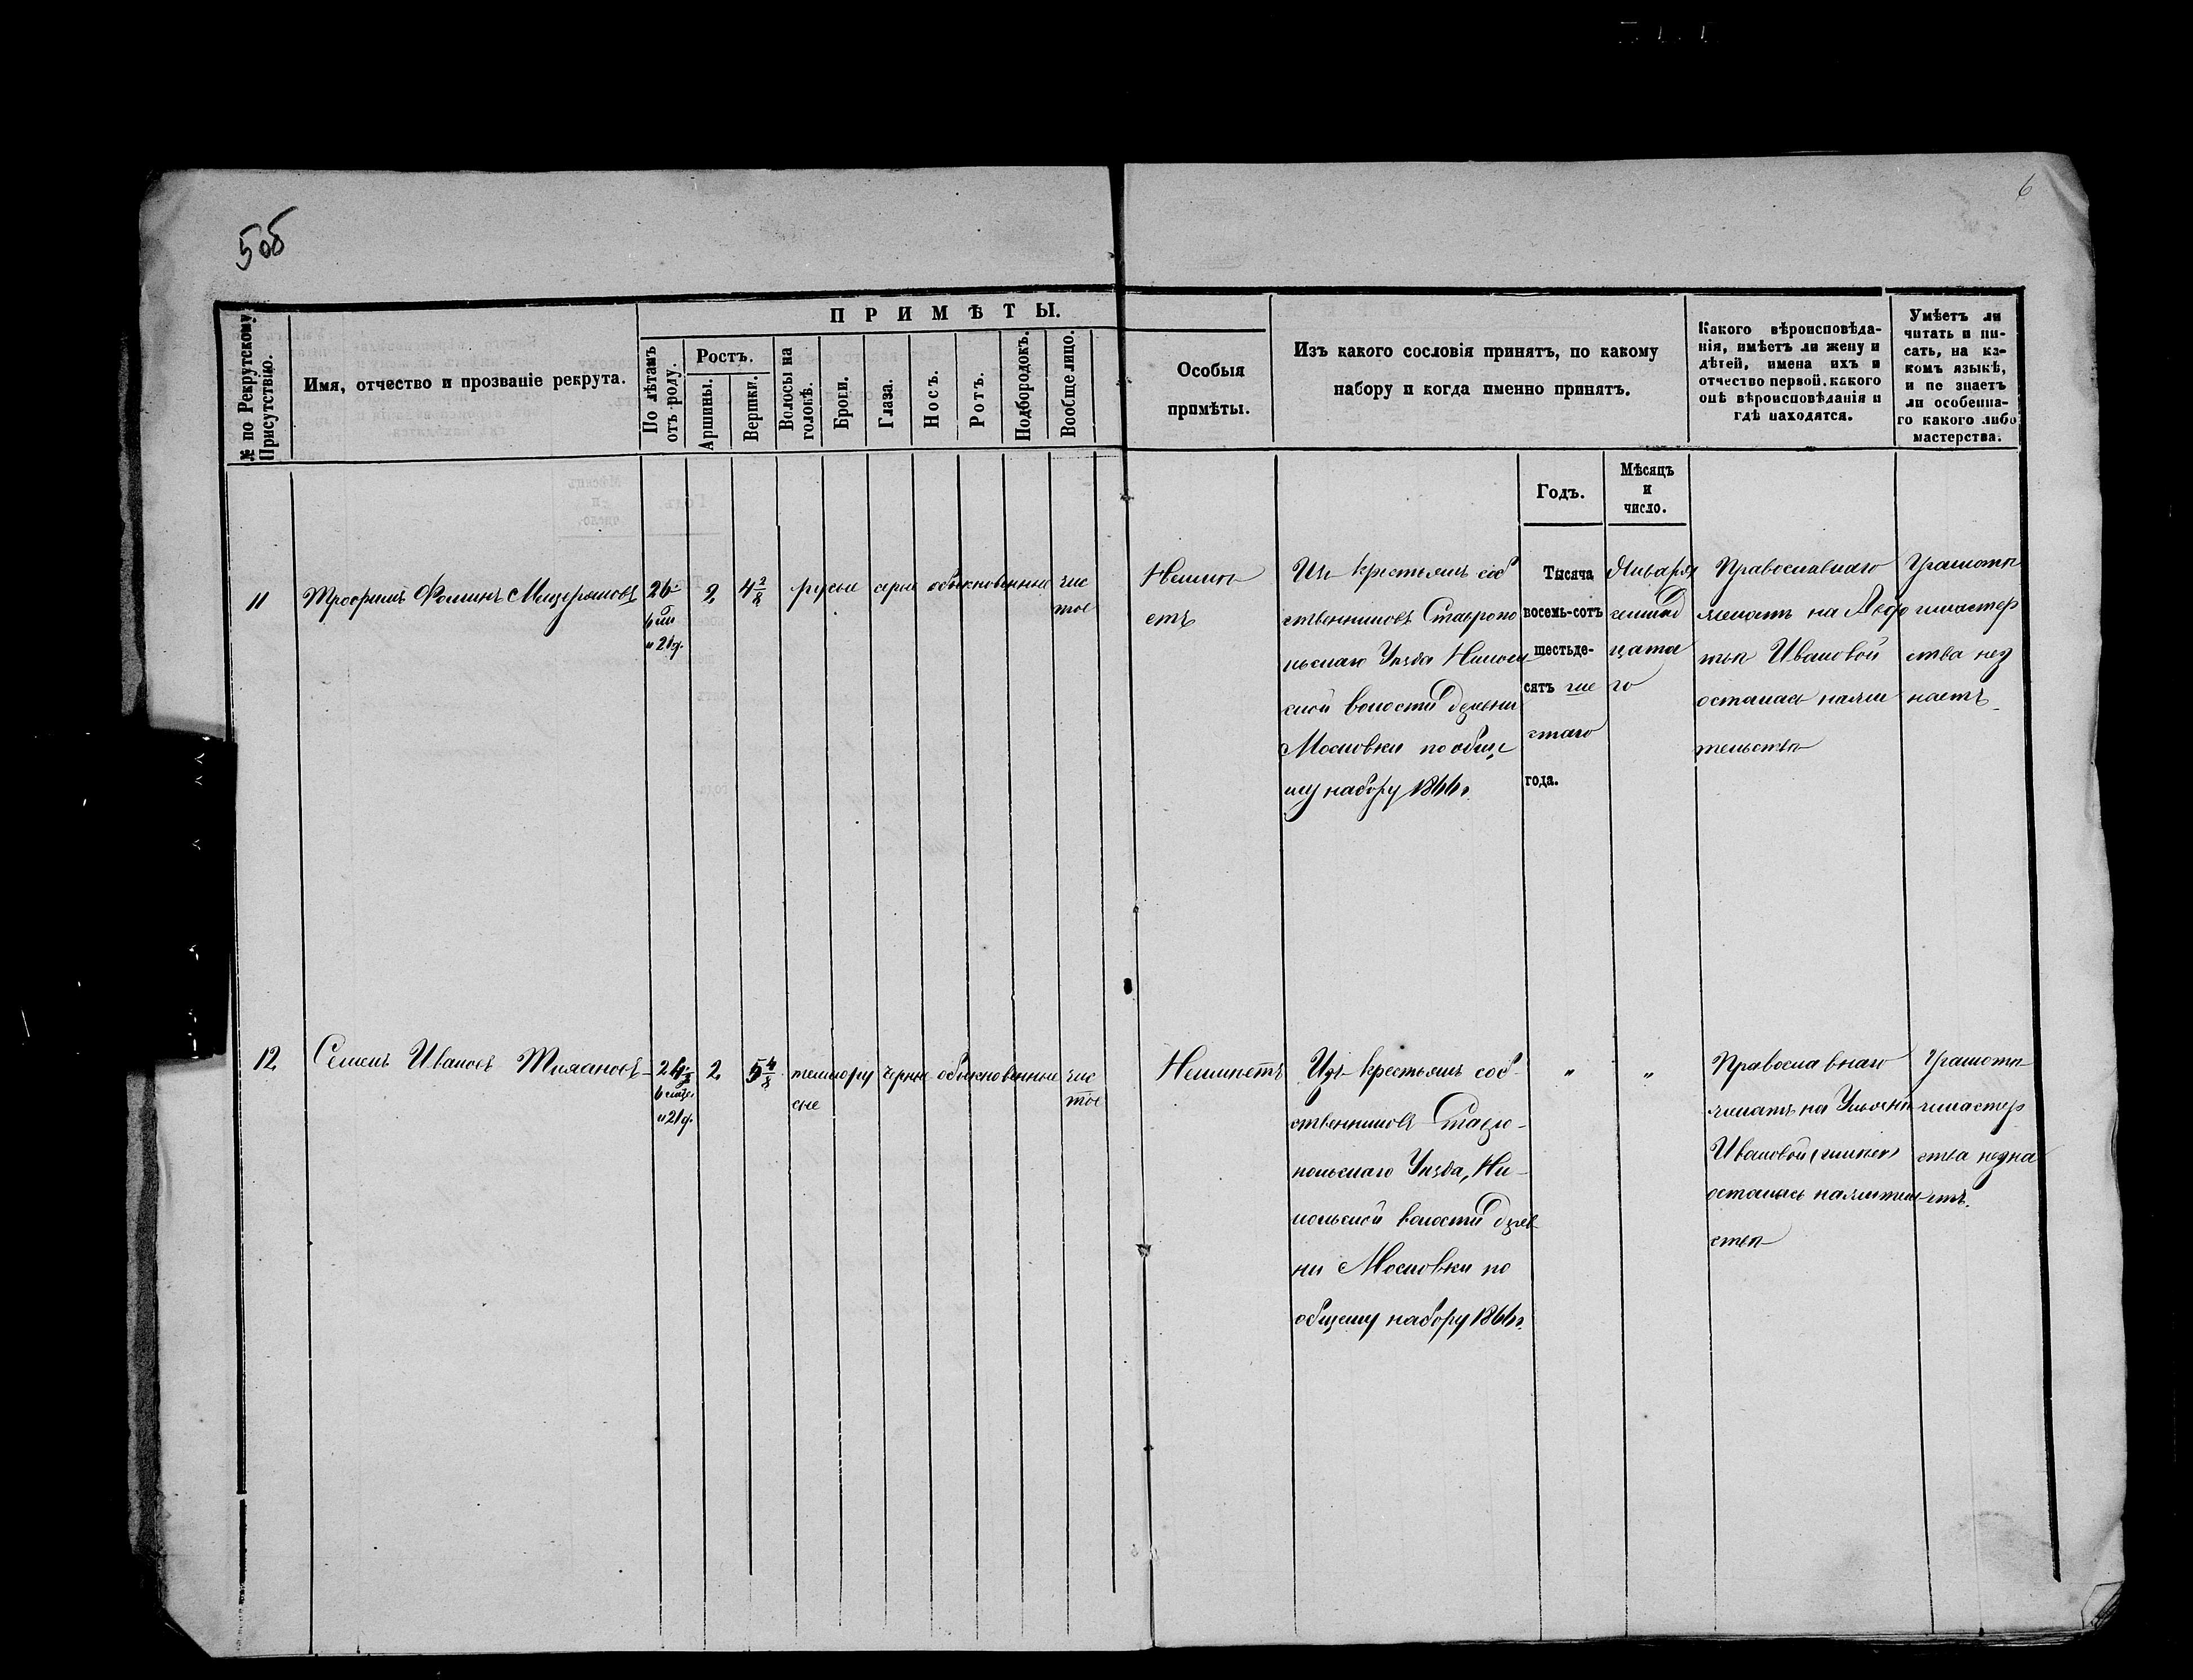 5об
6
№ по Рекрутскому Присутствію.
Имя, отчество и прозваніе рекрута.
ПРИМѢТЫ.
По лѣтамъ отъ роду.
Ростъ.
Аршины.
Вершки.
Волосы на головѣ.
Брови.
Глаза.
Носъ.
Ротъ.
Подбородокъ.
Вообще лицо.
Особыя
примѣты.
Изъ какого сословія принятъ, по какому
набору и когда именно принятъ.
Какого вѣроисповѣда-
нія, имѣетъ ли жену и
дѣтей, имена ихъ и
отчество первой, какого
онѣ вѣроисповѣданія и
гдѣ находятся.
Умѣетъ ли
читать и пи-
сать, на ка-
комъ языкѣ,
и не знаетъ
ли особенна-
го какого либо
мастерства.
Годъ.
Мѣсяцъ
и
число.
11
Трофимъ Фоминъ
26
и 21 д.
2
4 2/8
русые
серые
обыкновенные
чис
тое
Неимѣ
етъ
Изъ крестьянъ соб
ственниковъ Ставропо
льскаго Уѣзда Николь
ской волости деревни
Московки по обще
му набору 1866 г.
Тысяча
восемь-сотъ
шестьде-
сятъ ше
стаго
года.
Января
семнад
цата
го
Православнаго
женатъ на Авдо
тьѣ Ивановой
осталась нажи
тельствѣ
Грамотѣ
и мастер
ства нез
наетъ
12
Семенъ Ивановъ
24
6 мѣс.
и 21 д.
2
5 4/8
темнору
сые
черные
обыкновенные
чис
тое
Неимѣетъ
Изъ крестьянъ соб-
ственниковъ Ставро-
польскаго Уѣзда, Ни-
кольской волости дерев
ни Московки по
общему набору 1866 г.
"
"
Православнаго
женатъ на
Ивановой
осталась нажитель
ствѣ
Грамотѣ
и мастер
ства незна
етъ.